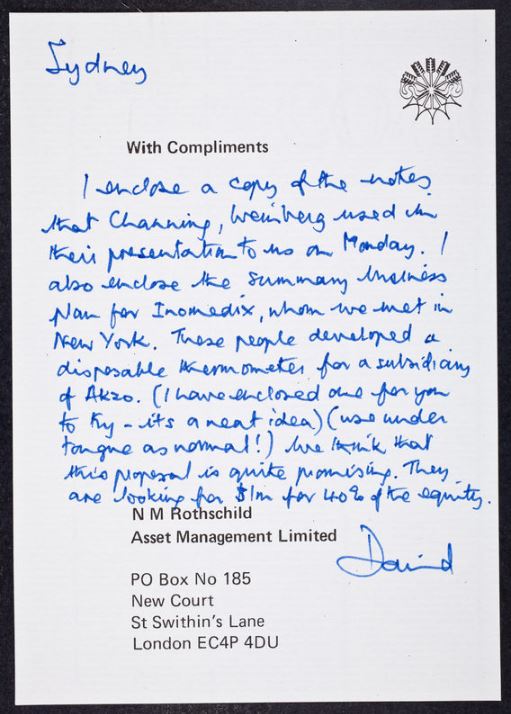 Sydney
With Compliments
I enclose a copy of the notes
that Channing, Weinberg used in
their presentation to us on Monday. I
also enclose the summary business
plan for Inomedix, whom we met in
New York. These people developed a
disposable thermometer for a subsidiary
of Akzo. (I have enclosed one for you
to try - its a neat idea) (use under
tongue as normal!) We think that
this proposal is quite promising. They
are looking for $1m for 40% of the equity.
N M Rothschild
Asset Management Limited
David
PO Box No 185
New Court
St Swithin's Lane
London EC4P 4DU